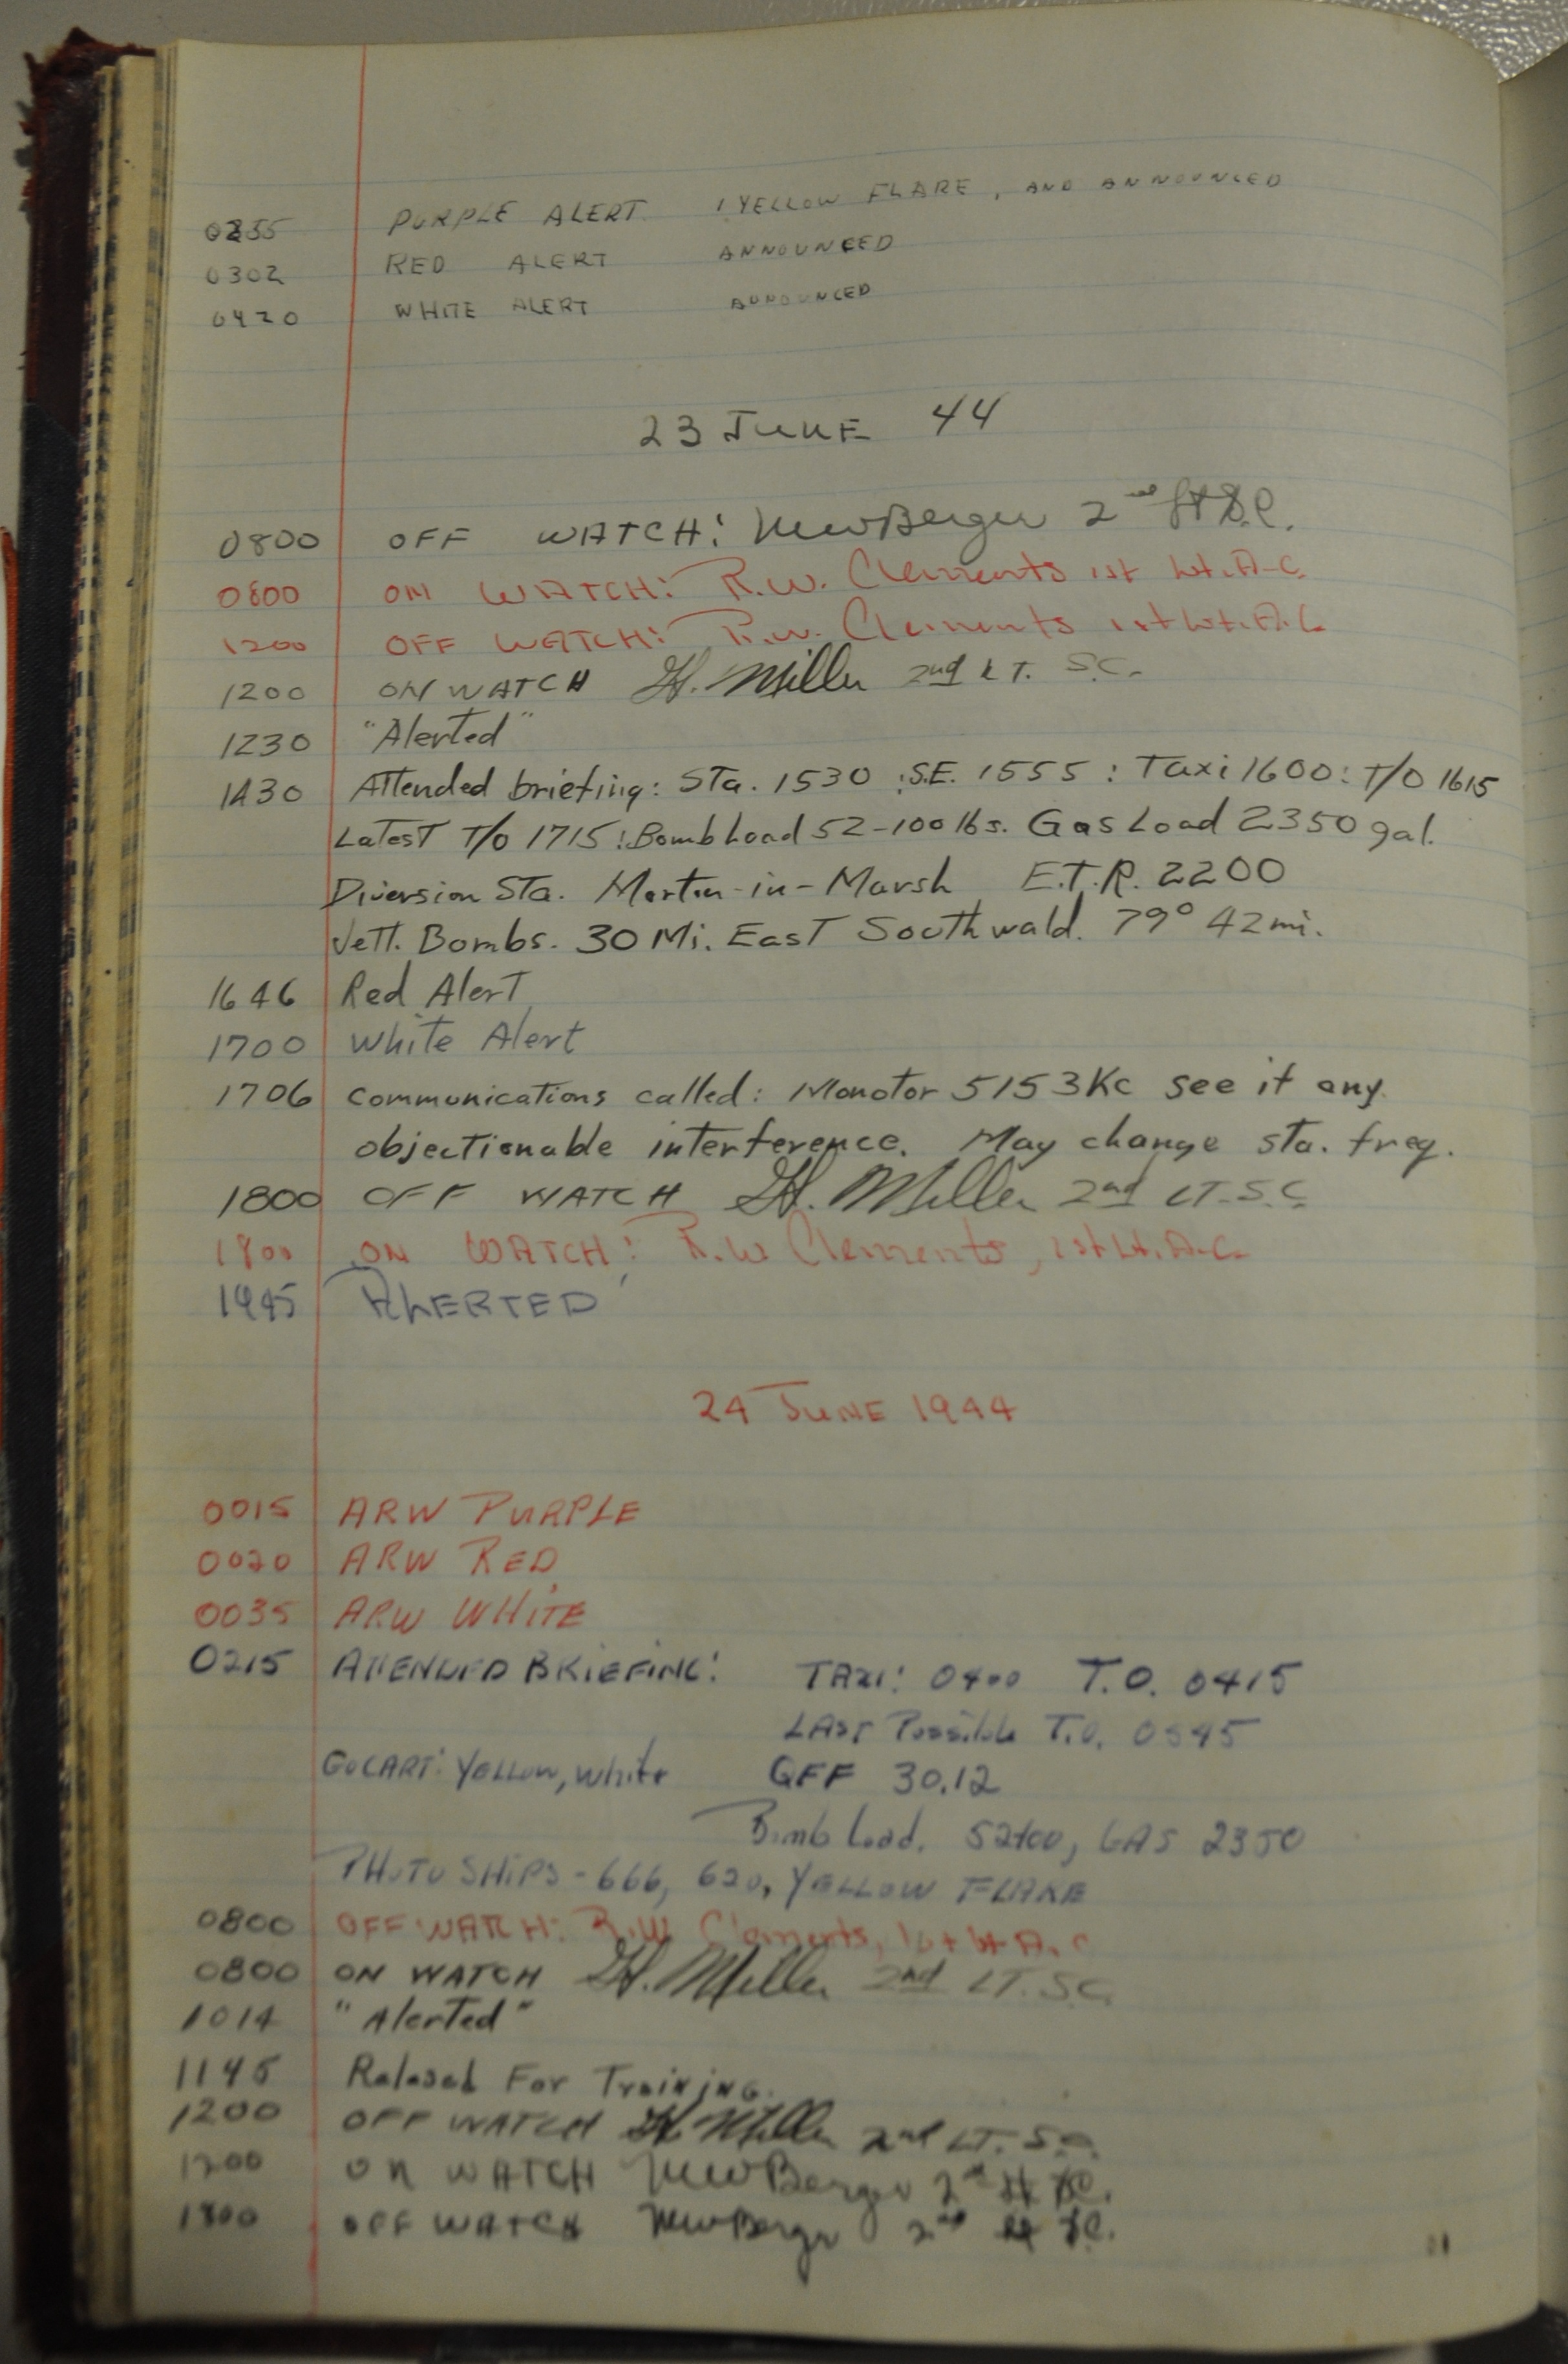 0255 PURPLE ALERT 1 YELLOW FLARE, AND ANNOUNCED
0302 RED ALERT ANNOUNCED
0420 WHITE ALERT ANNOUNCED
23 JUNE 44
0800 OFF WATCH: MWBerger 2nd Lt S.C.
0800 ON WATCH: R.W. Clements 1st Lt. A.C.
1200 OFF WATCH: R.W. Clements 1st Lt. A.C.
1200 ON WATCH H. Miller 2nd LT. S.C.
1230 "Alerted"
1430 Attended briefing: Sta. 1530 : S.E. 1555 : Taxi 1600 : T/O 1615
Latest T/O 1715 : Bomb Load 52-100 lbs. Gas Load 2350 gal.
Diversion Sta. Morton-in-Marsh E.T.R. 2200
Jett. Bombs. 30 Mi. East Southwald. 79° 42 mi.
1646 Red Alert
1700 White Alert
1706 Communications called: Monotor 5153 Kc see if any
objectionable interference. May change sta. freq.
1800 OFF WATCH H. Miller 2nd LT. S.C.
1800 ON WATCH: R.W. Clements, 1st Lt. A.C.
1945 ALERTED
24 JUNE 1944
0015 ARW PURPLE
0020 ARW RED
0035 ARW WHITE
0215 ATTENDED BRIEFING: TAXI: 0400 T.O. 0415
LAST Possible T.O. 0545
GOCART: YELLOW, white QFF 30.12
Bomb Load. 52x100, GAS 2350
PHOTO SHIPS - 666, 620, YELLOW FLARE
0800 OFF WATCH: R.W. Clements, 1st Lt A.C
0800 ON WATCH H. Miller 2nd LT. S.C.
1014 "Alerted"
1145 Relased For Training.
1200 OFF WATCH H. Miller 2nd LT. S.C.
1200 ON WATCH MWBerger 2nd Lt SC.
1800 OFF WATCH MWBerger 2nd Lt SC.